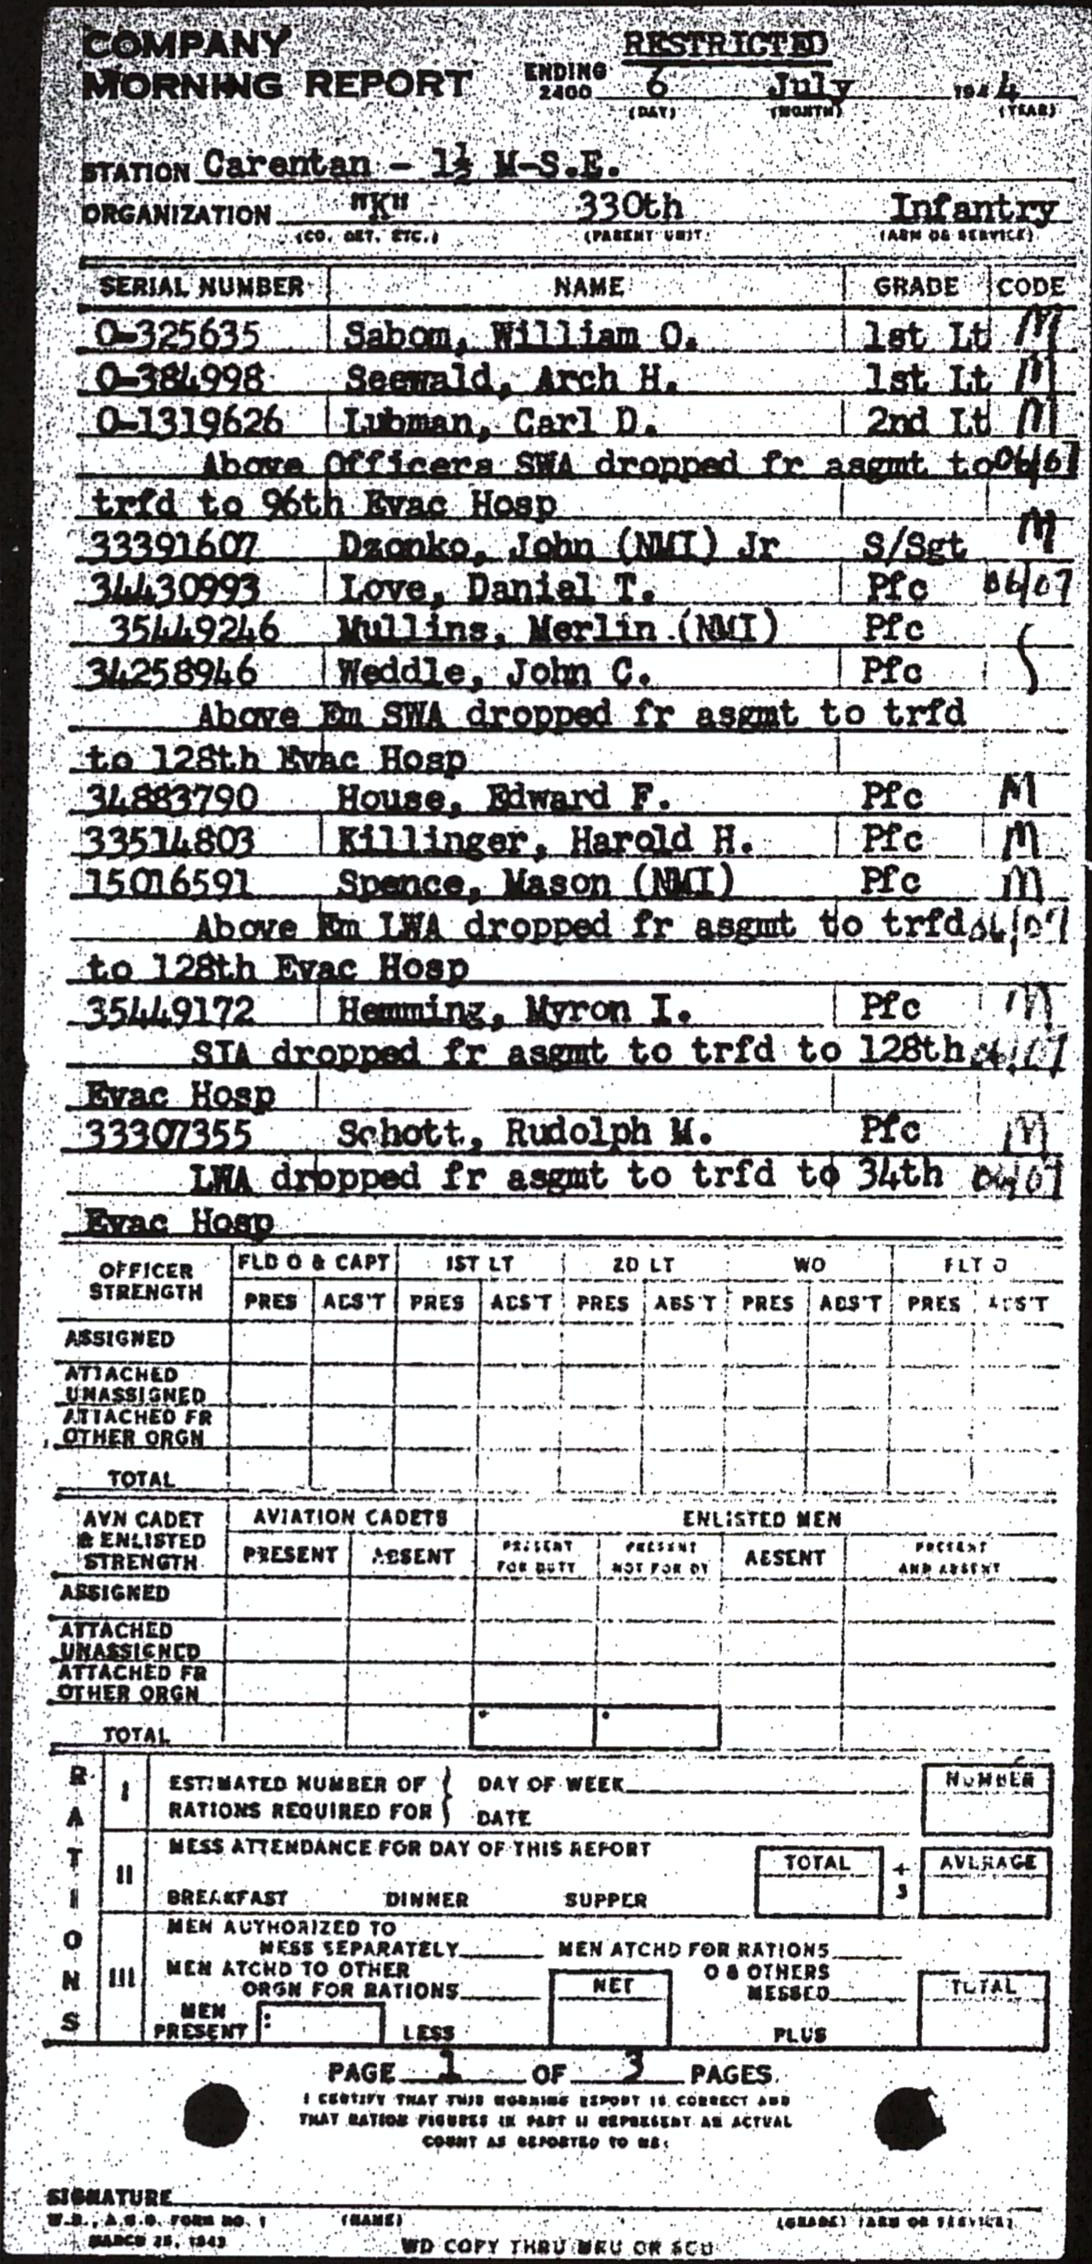 COMPANY RESTRICTED
MORNING REPORT ENDING 2400 6 July 1944
(DAY) (MONTH) (YEAR)
STATION Carentan - 1½ M-S.E.
ORGANIZATION "K" 330th Infantry
(CO. DET. ETC.) (PARENT UNIT) (ARM OR SERVICE)
SERIAL NUMBER NAME GRADE CODE
O-325635 Sabom, William O. 1st Lt M
O-384998 Seewald, Arch H. 1st Lt M
O-1319626 Lubman, Carl D. 2nd Lt M
Above Officers SWA dropped fr asgmt to 06/07
trfd to 96th Evac Hosp
33391607 Dzonko, John (NMI) Jr S/Sgt M
34430993 Love, Daniel T. Pfc 06/07
35449246 Mullins, Merlin (NMI) Pfc
34258946 Weddle, John C. Pfc
Above Em SWA dropped fr asgmt to trfd
to 128th Evac Hosp
34883790 House, Edward F. Pfc M
33514803 Killinger, Harold H. Pfc M
15016591 Spence, Mason (NMI) Pfc M
Above Em LWA dropped fr asgmt to trfd 06/07
to 128th Evac Hosp
35449172 Hemming, Myron I. Pfc M
SIA dropped fr asgmt to trfd to 128th 06/07
Evac Hosp
33307355 Schott, Rudolph M. Pfc M
LWA dropped fr asgmt to trfd to 34th 06/07
Evac Hosp
OFFICER STRENGTH FLD O & CAPT 1ST LT 2D LT WO FLT O
PRES ABS'T PRES ABS'T PRES ABS'T PRES ABS'T PRES ABS'T
ASSIGNED
ATTACHED
UNASSIGNED
ATTACHED FR
OTHER ORGN
TOTAL
AVN CADET & ENLISTED STRENGTH AVIATION CADETS ENLISTED MEN
PRESENT ABSENT PRESENT FOR DUTY PRESENT NOT FOR DY ABSENT PRESENT AND ABSENT
ASSIGNED
ATTACHED
UNASSIGNED
ATTACHED FR
OTHER ORGN
TOTAL
RATIONS
I ESTIMATED NUMBER OF DAY OF WEEK NUMBER
RATIONS REQUIRED FOR DATE
II MESS ATTENDANCE FOR DAY OF THIS REPORT
TOTAL ÷ 3 AVERAGE
BREAKFAST DINNER SUPPER
III MEN AUTHORIZED TO
MESS SEPARATELY MEN ATCHD FOR RATIONS
MEN ATCHD TO OTHER O & OTHERS
ORGN FOR RATIONS NET MESSED TOTAL
MEN
PRESENT LESS PLUS
PAGE 1 OF 3 PAGES
I CERTIFY THAT THIS MORNING REPORT IS CORRECT AND
THAT RATION FIGURES IN PART II REPRESENT AN ACTUAL
COUNT AS REPORTED TO ME:
SIGNATURE
W.D., A.G.O. FORM NO. 1 (NAME) (GRADE) (ARM OR SERVICE)
MARCH 25, 1943
WD COPY THRU MRU OR SCU